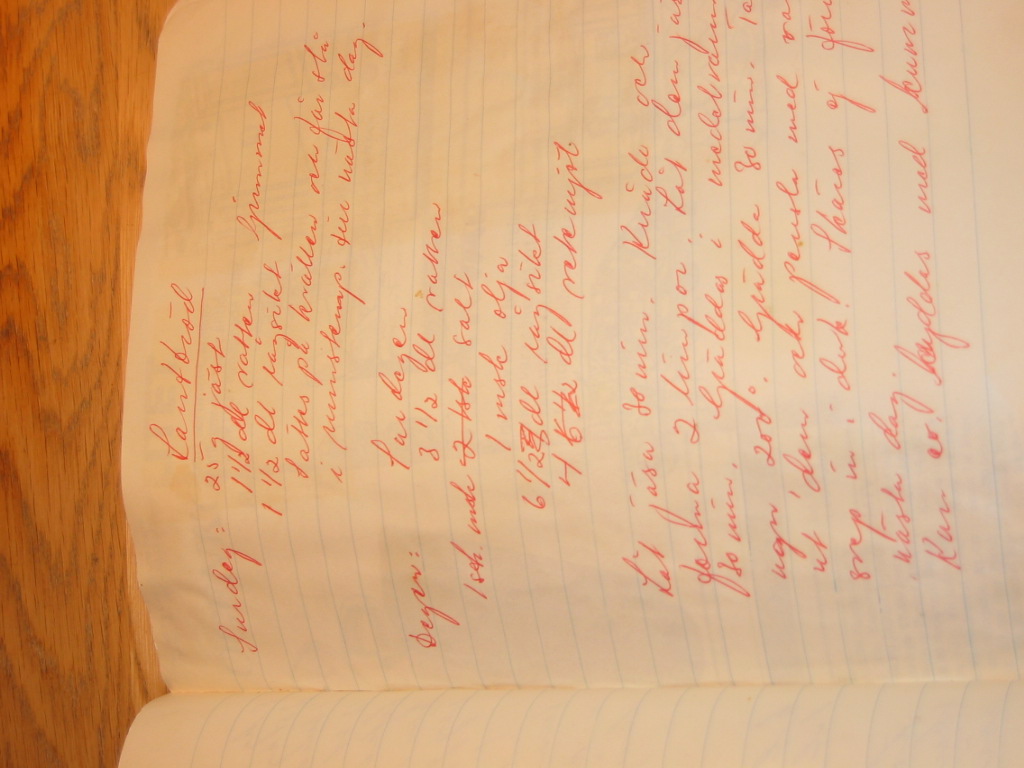 Lantbröd
Surdeg: 25 g jäst
1 1/2 dl vatten
1 1/2 dl rågsikt ljummet
Sättes på kvällen och får stå
i rumstemp. till nästa dag.
Degen: Surdegen
3 1/2 dl vatten
1 msk salt
1 msk olja
6 1/2 dl rågsikt
4 dl vetemjöl
Låt jäsa 30 min. Knåda och
forma 2 limpor. Låt den jä
30 min. Gräddas i medelvarm
ugn 200°. Grädda 30 min. Ta
ut dem och pensla med va
svep in i duk. Skäres ej före
nästa dag.
Kan ev. kryddas med kumm